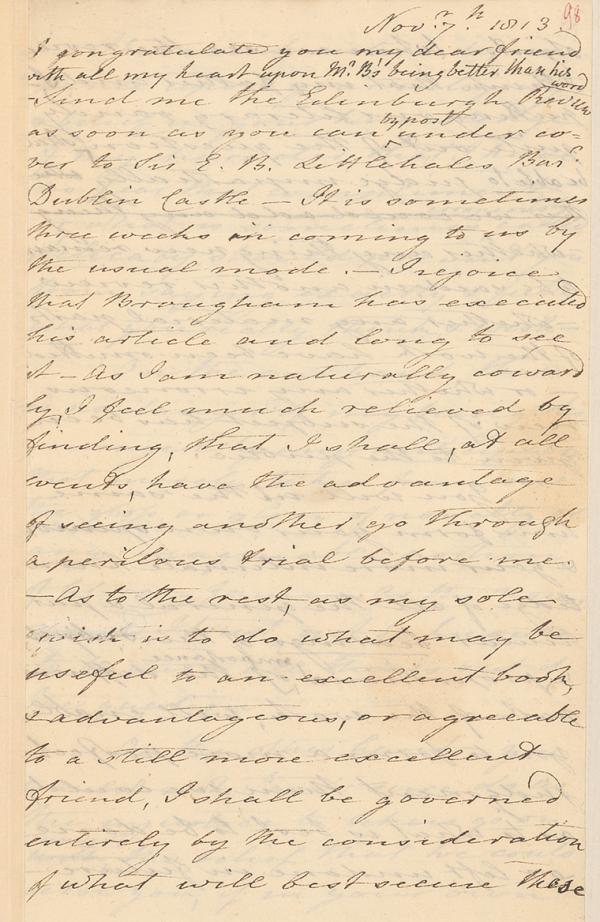 98
Nov.r 7.th 1813.
I congratulate you my dear friend
with all my heart upon Mr. B's being better than his word
- Send me the Edinburgh Review
as soon as you can by post under co=
ver to Sir E. B. Littlehales Bart.
Dublin Castle — It is sometimes
three weeks in coming to us by
the usual mode. — I rejoice
that Brougham has executed
his article and long to see
it — As I am naturally coward
ly, I feel much relieved by
finding, that I shall, at all
events, have the advantage
of seeing another go through
a perilous trial before me.
— As to the rest, as my sole
wish is to do what may be
useful to an excellent book,
& advantageous, or agreeable
to a still more excellent
friend, I shall be governed
entirely by the consideration
of what will best secure these